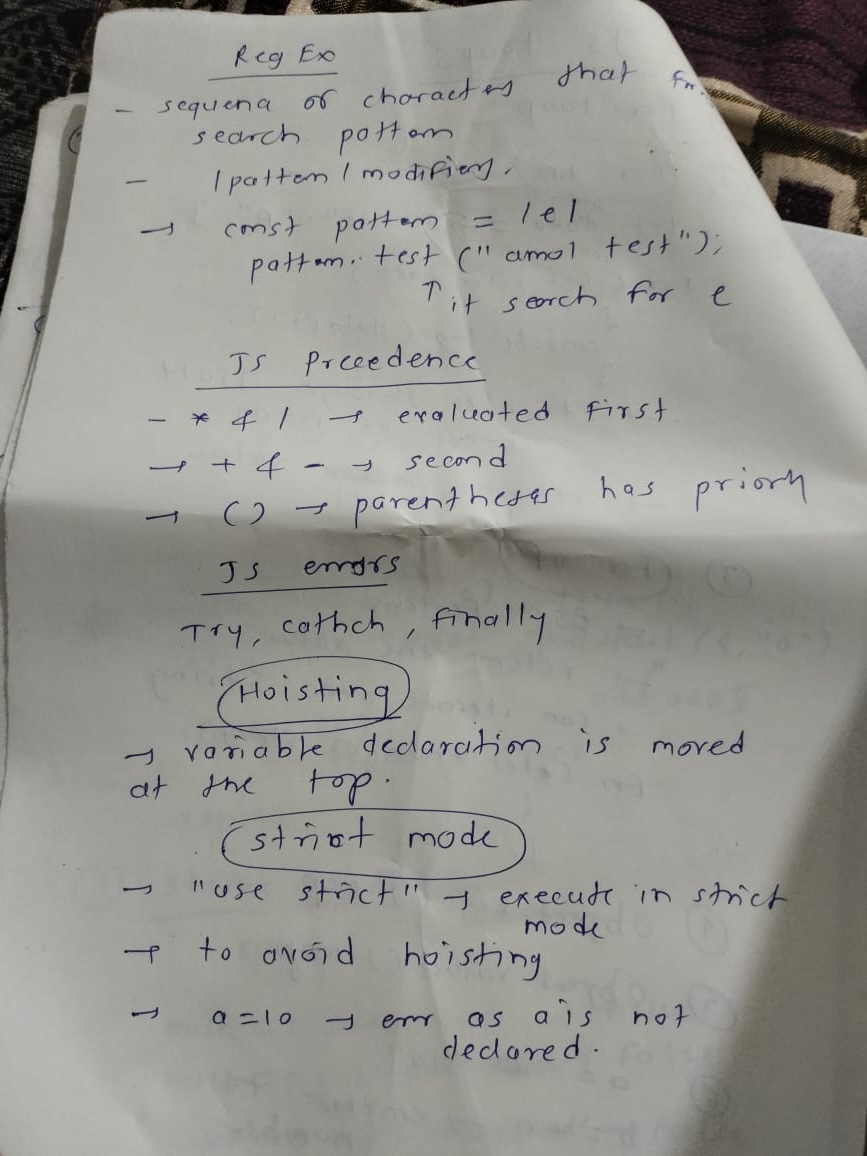 Reg Ex
- sequena of characters that
search pattern
- /pattern/modifiers.
→ const pattern = /e/
pattern.test ("amol test");
↑ it search for e
JS Preeedence
- * & / → evaluated first
→ + & - → second
→ () → parentheses has priority
JS errors
Try, cathch, finally
Hoisting
→ variable declaration is moved
at the top.
strict mode
→ "use strict" → execute in strict
mode
→ to avoid hoisting
→ a=10 → err as a is not
declared.